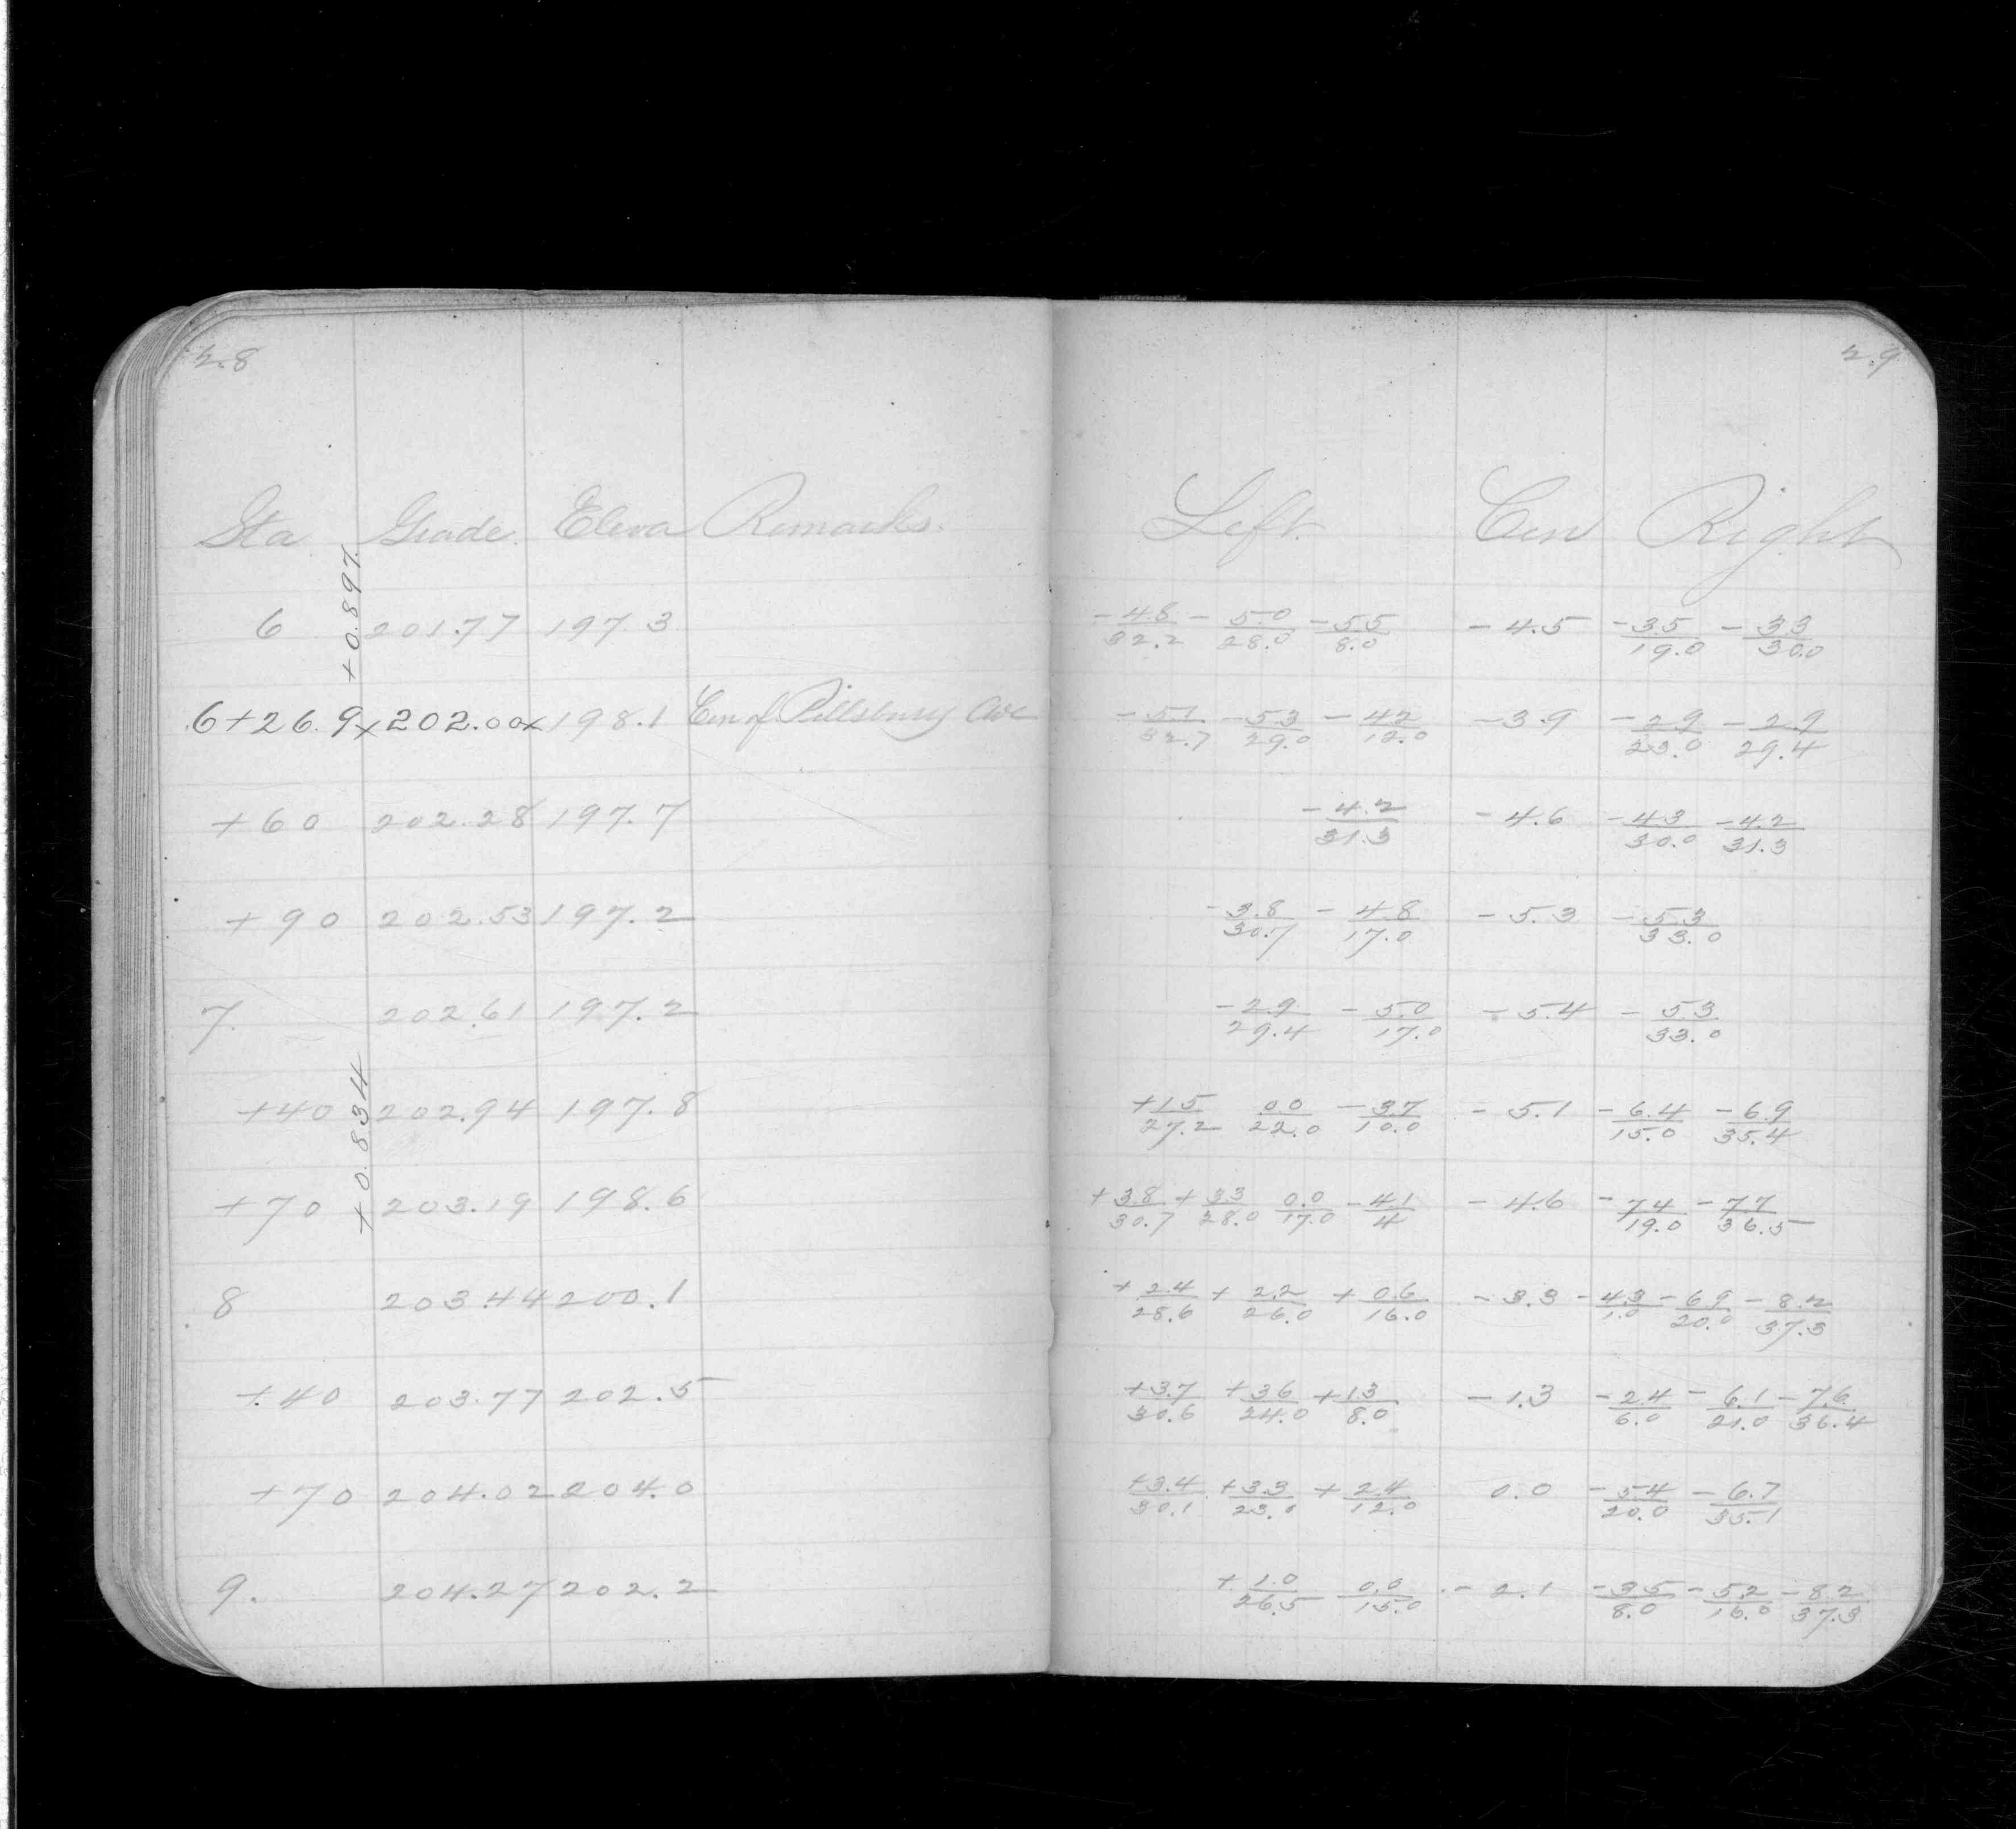 28
29
Sta Grade Eleva Remarks. Left. Cen Right
+0.897
6 201.77 197.3 -4.8/32.2 -5.0/28.0 -5.5/8.0 -4.5 -3.5/19.0 -3.3/30.0
6+26.9x 202.00x 198.1 Cen of Pillsbury Ave -5.1/32.7 -5.3/29.0 -4.2/12.0 -3.9 -2.9/23.0 -2.9/29.4
+60 202.28 197.7 -4.2/31.3 -4.6 -4.3/30.0 -4.2/31.3
+90 202.53 197.2 -3.8/30.7 -4.8/17.0 -5.3 -5.3/33.0
7. 202.61 197.2 -2.9/29.4 -5.0/17.0 -5.4 -5.3/33.0
+0.834
+40 202.94 197.8 +1.5/27.2 0.0/22.0 -3.7/10.0 -5.1 -6.4/15.0 -6.9/35.4
+70 203.19 198.6 +3.8/30.7 +3.3/28.0 0.0/17.0 -4.1/4 -4.6 -7.4/19.0 -7.7/36.5
8 203.44 200.1 +2.4/28.6 +2.2/26.0 +0.6/16.0 -3.3 -4.3/1.0 -6.9/20.0 -8.2/37.3
+40 203.77 202.5 +3.7/30.6 +3.6/24.0 +1.3/8.0 -1.3 -2.4/6.0 -6.1/21.0 -7.6/36.4
+70 204.02 204.0 +3.4/30.1 +3.3/23.0 +2.4/12.0 0.0 -5.4/20.0 -6.7/35.1
9. 204.27 202.2 +1.0/26.5 0.0/15.0 -2.1 -3.5/8.0 -5.2/16.0 -8.2/37.3